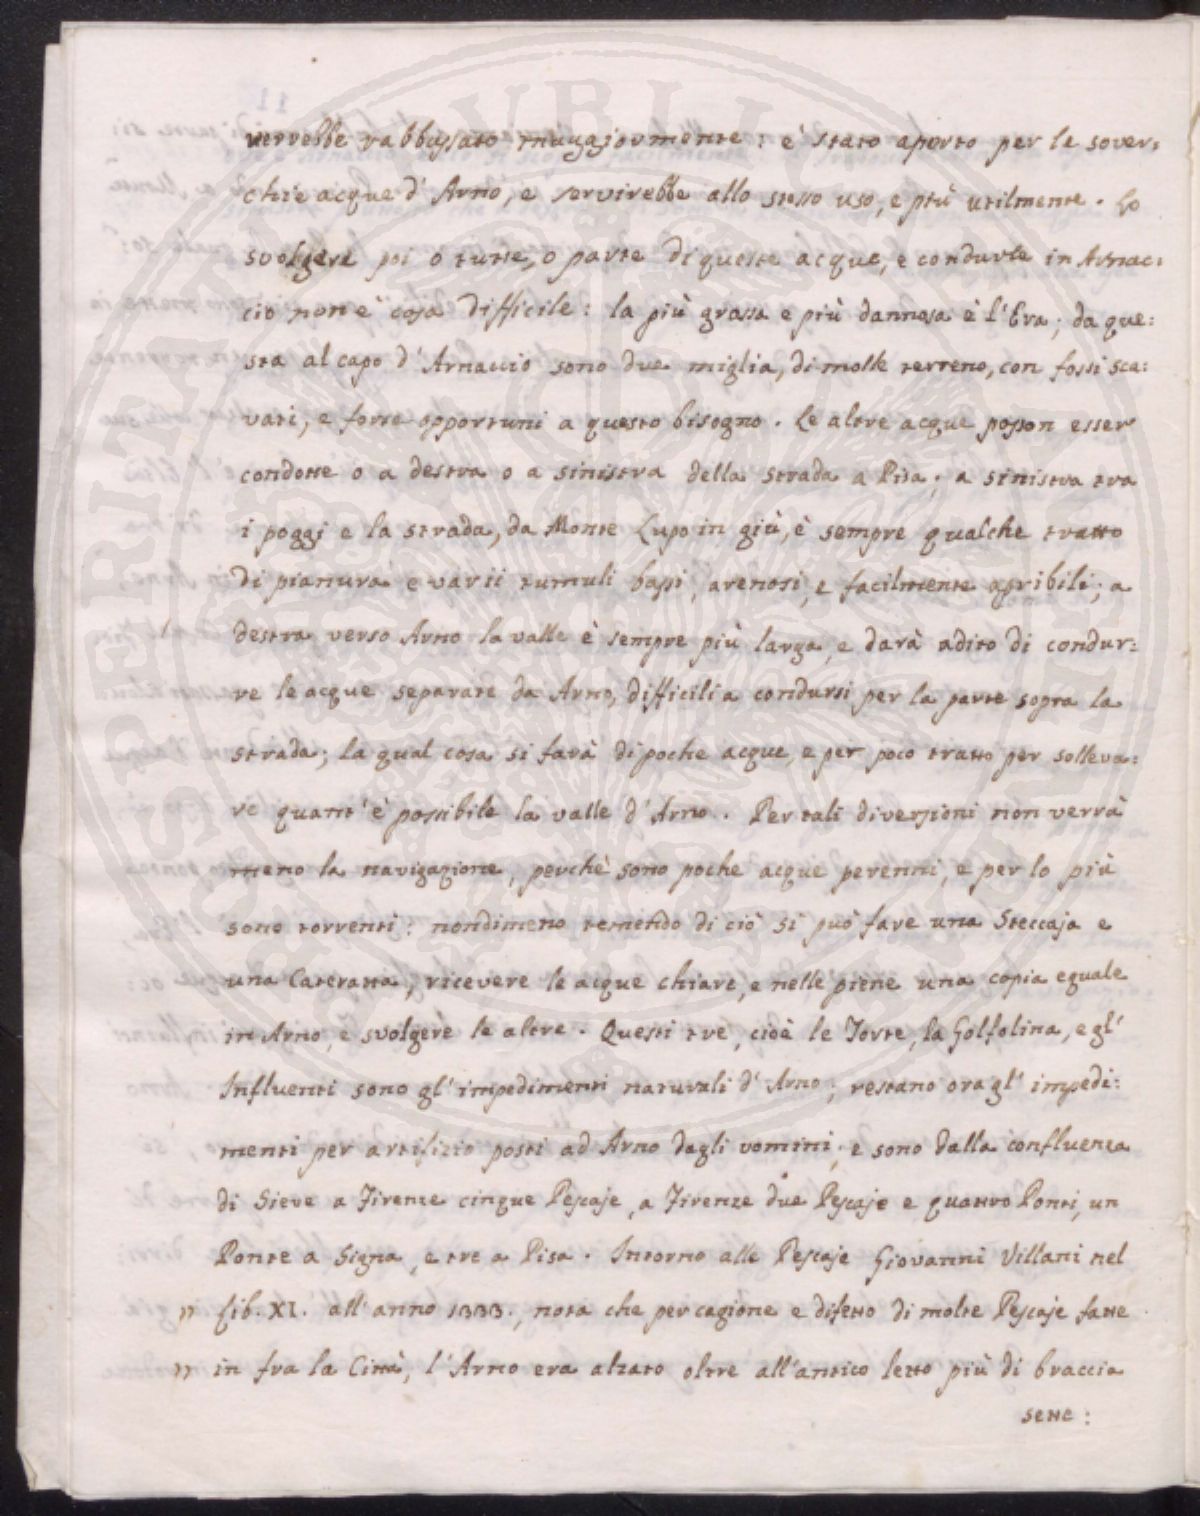 verrebbe rabbassato maggiormente: è stato aperto per le sover:
chie acque d'Arno, e servirebbe allo stesso uso, e più utilmente. Lo
svolgere poi o tutte, o parte di queste acque, e condurle in Arnac:
cio non è cosa difficile: la più grassa e più dannosa è l'Era; da que:
sta al capo d'Arnaccio sono due miglia, di molle terreno, con fossi sca:
vati, e forse opportuni a questo bisogno. Le altre acque posson esser
condotte o a destra o a sinistra della strada a Pisa; a sinistra tra
i poggi e la strada, da Monte Lupo in giù, è sempre qualche tratto
di pianura e varii tumuli bassi, arenosi, e facilmente apribili; a
destra verso Arno la valle è sempre più larga, e darà adito di condur:
re le acque separate da Arno, difficili a condursi per la parte sopra la
strada; la qual cosa si farà di poche acque, e per poco tratto per solleva:
re quant'è possibile la valle d'Arno. Per tali diversioni non verrà
meno la navigazione, perchè sono poche acque perenni, e per lo più
sono torrenti: nondimeno temendo di ciò si può fare una Steccaja e
una Cateratta, ricevere le acque chiare, e nelle piene una copia eguale
in Arno, e svolgere le altre. Questi tre, cioè le Torte, la Golfolina, e gl'
Influenti sono gl'impedimenti naturali d'Arno; restano ora gl'impedi:
menti per artifizio posti ad Arno dagli uomini, e sono dalla confluenza
di Sieve a Firenze cinque Pescaje, a Firenze due Pescaje e quattro Ponti, un
Ponte a Signa, e tre a Pisa. Intorno alle Pescaje Giovanni Villani nel
" Lib. XI. all'anno 1333., nota che per cagione e difetto di molte Pescaje fatte
" in fra la Città, l'Arno era alzato oltre all'antico letto più di braccia
sette: